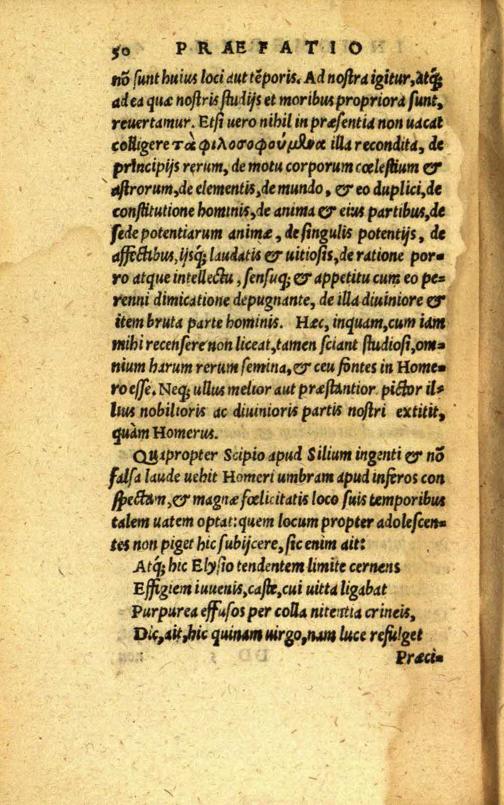 50 PRAEFATIO
nõ sunt huius loci aut tẽporis. Ad nostra igitur, atq;
ad ea quæ nostris studijs et moribus propriora sunt,
reuertamur. Etsi uero nihil in præsentia non uacat
colligere τὰ φιλοσοφούμϖα illa recondita, de
principijs rerum, de motu corporum cœlestium &
astrorum, de elementis, de mundo, & eo duplici, de
constitutione hominis, de anima & eius partibus, de
sede potentiarum animæ, de singulis potentijs, de
affectibus, ijsq; laudatis & uitiosis, de ratione por=
ro atque intellectu, sensuq; & appetitu cum eo pe=
renni dimicatione depugnante, de illa diuiniore &
item bruta parte hominis. Hæc, inquam, cum iam
mihi recensere non liceat, tamen sciant studiosi, om=
nium harum rerum semina, & ceu fontes in Home=
ro esse. Neq; ullus melior aut præstantior pictor il=
lius nobilioris ac diuinioris partis nostri extitit,
quàm Homerus.
Quapropter Scipio apud Silium ingenti & nõ
falsa laude uehit Homeri umbram apud inferos con
spectam, & magnæ fœlicitatis loco suis temporibus
talem uatem optat: quem locum propter adolescen=
tes non piget hic subijcere, sic enim ait:
Atq; hic Elysio tendentem limite cernens
Effigiem iuuenis, caste, cui uitta ligabat
Purpurea effusos per colla nitentia crineis,
Dic, ait, hic quinam uirgo, nam luce refulget
Præci=